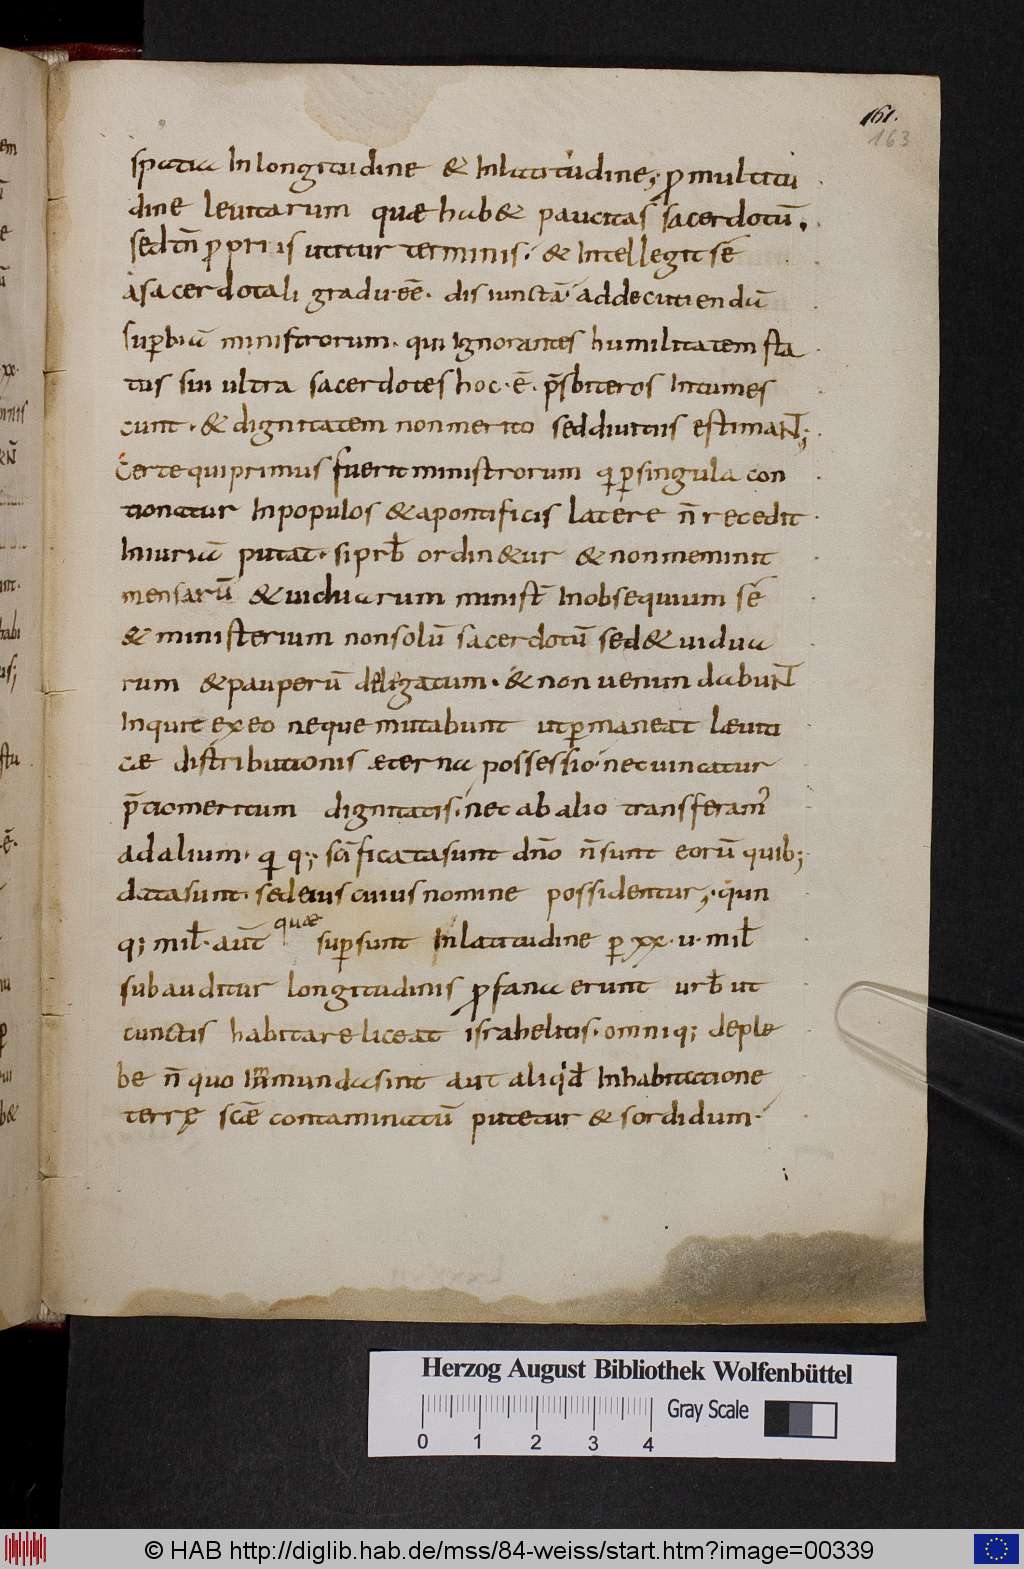 161.
163
spatia In longitudine & In latitudine; ꝓ multitu
dine leuitarum quae hab& paucitas sacerdotū.
sed tn̄ ꝓpriis utitur terminis. & Intellegit sé
a sacerdotali gradu. eē. disiunctā. ad decutiendū
suꝑbiā ministrorum. qui Ignorantes humilitatem sta
tus sui ultra sacerdotes hoc. ē. p̄sbiteros Intumes
cunt. & dignitatem non merito sed diuitiis estimaNT;
Certe qui primus fuerit ministrorum q̢ ꝑ singula con
tionatur In populos & a pontificis latere n̄ recedit
Iniuriā putat. si prƀ ordin&ur & non meminit
mensarū & uiduarum minist̄ In obsequium sé
& ministerium non solū sacerdotū sed & uidua
rum & pauperū delegatum. & non uenundabuNT
Inquit ex eo neque mutabunt ut ꝑmaneat laeuiti
cae distributionis aeterna possessio. nec uincatur
p̄tio meritum dignitatis. nec ab alio transferam̄
ad alium. q̢ q;. sc̄ificata sunt dn̄o n̄ sunt eorū quib;
data sunt. sed eius cuius nomine possidentur;. quin
q; mił. aūt quae suꝑsunt In latitudine ꝑ xx. u. mił
subauditur longitudinis ꝓfana erunt urƀ ut
cunctis habitare liceat israhelitis. omniq; de ple
be n̄ quo Inmunda sint aut aliqd̄ In habitatione
terrę sc̄ae contaminatū putetur & sordidum.
Herzog August Bibliothek Wolfenbüttel
Gray Scale
0 1 2 3 4
© HAB http://diglib.hab.de/mss/84-weiss/start.htm?image=00339